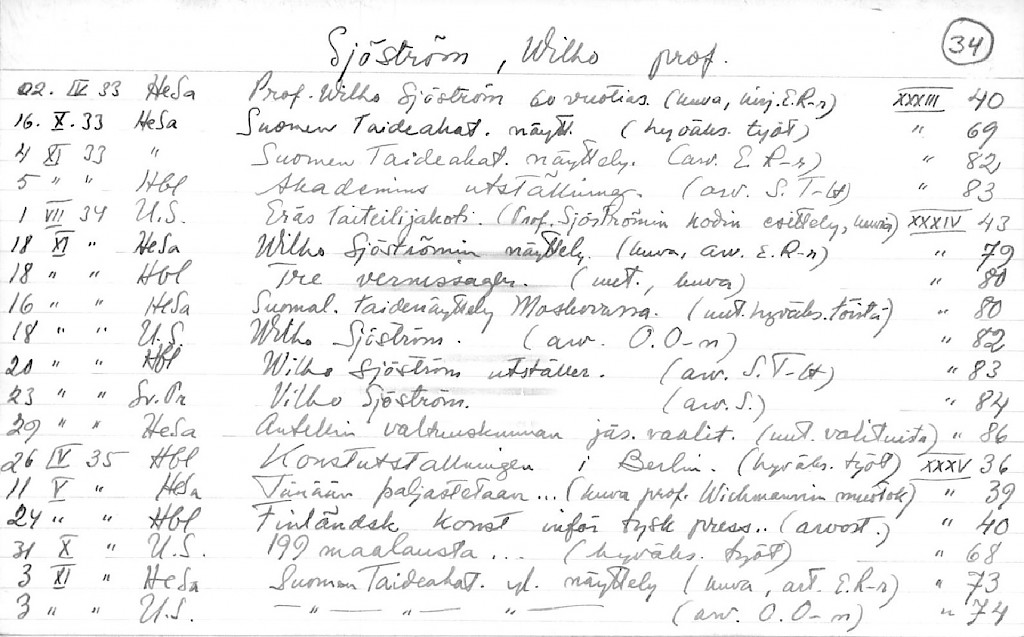 34
Sjöström, Wilho prof.
22. IV 33 HeSa Prof. Wilho Sjöström 60 vuotias. (kuva, kirj. E.R-r) XXXIII 40
16. X. 33 HeSa Suomen Taideakat. näytt. (hyväks. työt) " 69
4 XI 33 " Suomen Taideakat. näyttely. (arv. E R-r) " 82
5 " " Hbl Akademins utställning. (arv. S. T-lt) " 83
1 VII 34 U.S. Eräs taiteilijakoti. (Prof. Sjöströmin kodin esittely, kuvia) XXXIV 43
18 XI " HeSa Wilho Sjöströmin näyttely. (kuva, arv. E.R-r) " 79
18 " " Hbl Tre vernissager. (uut., kuva) " 80
16 " " HeSa Suomal. taidenäyttely Moskovassa. (uut. hyväks. töistä) " 80
18 " " U.S. Wilho Sjöström. (arv. O.O-n) " 82
20 " " Hbl Wilho Sjöström utställer. (arv. S.T-lt) " 83
23 " " Sv.Pr Vilho Sjöström. (arv. S.) " 84
29 " " HeSa Antellin valtuuskunnan jäs. vaalit. (uut. valituista) " 86
26 IV 35 Hbl Konstutställningen i Berlin. (hyväks. työt) XXXV 36
11 V " HeSa Tänään paljastetaan... (kuva prof. Wichmannin muistok) " 39
24 " " Hbl Finländsk konst inför tysk press.. (arvost.) " 40
31 X " U.S. 199 maalausta ... (hyväks. työt) " 68
3 XI " HeSa Suomen Taideakat. yl. näyttely (kuva, art. E.R-r) " 73
3 " " U.S. — " — " — " — (arv. O.O-n) " 74